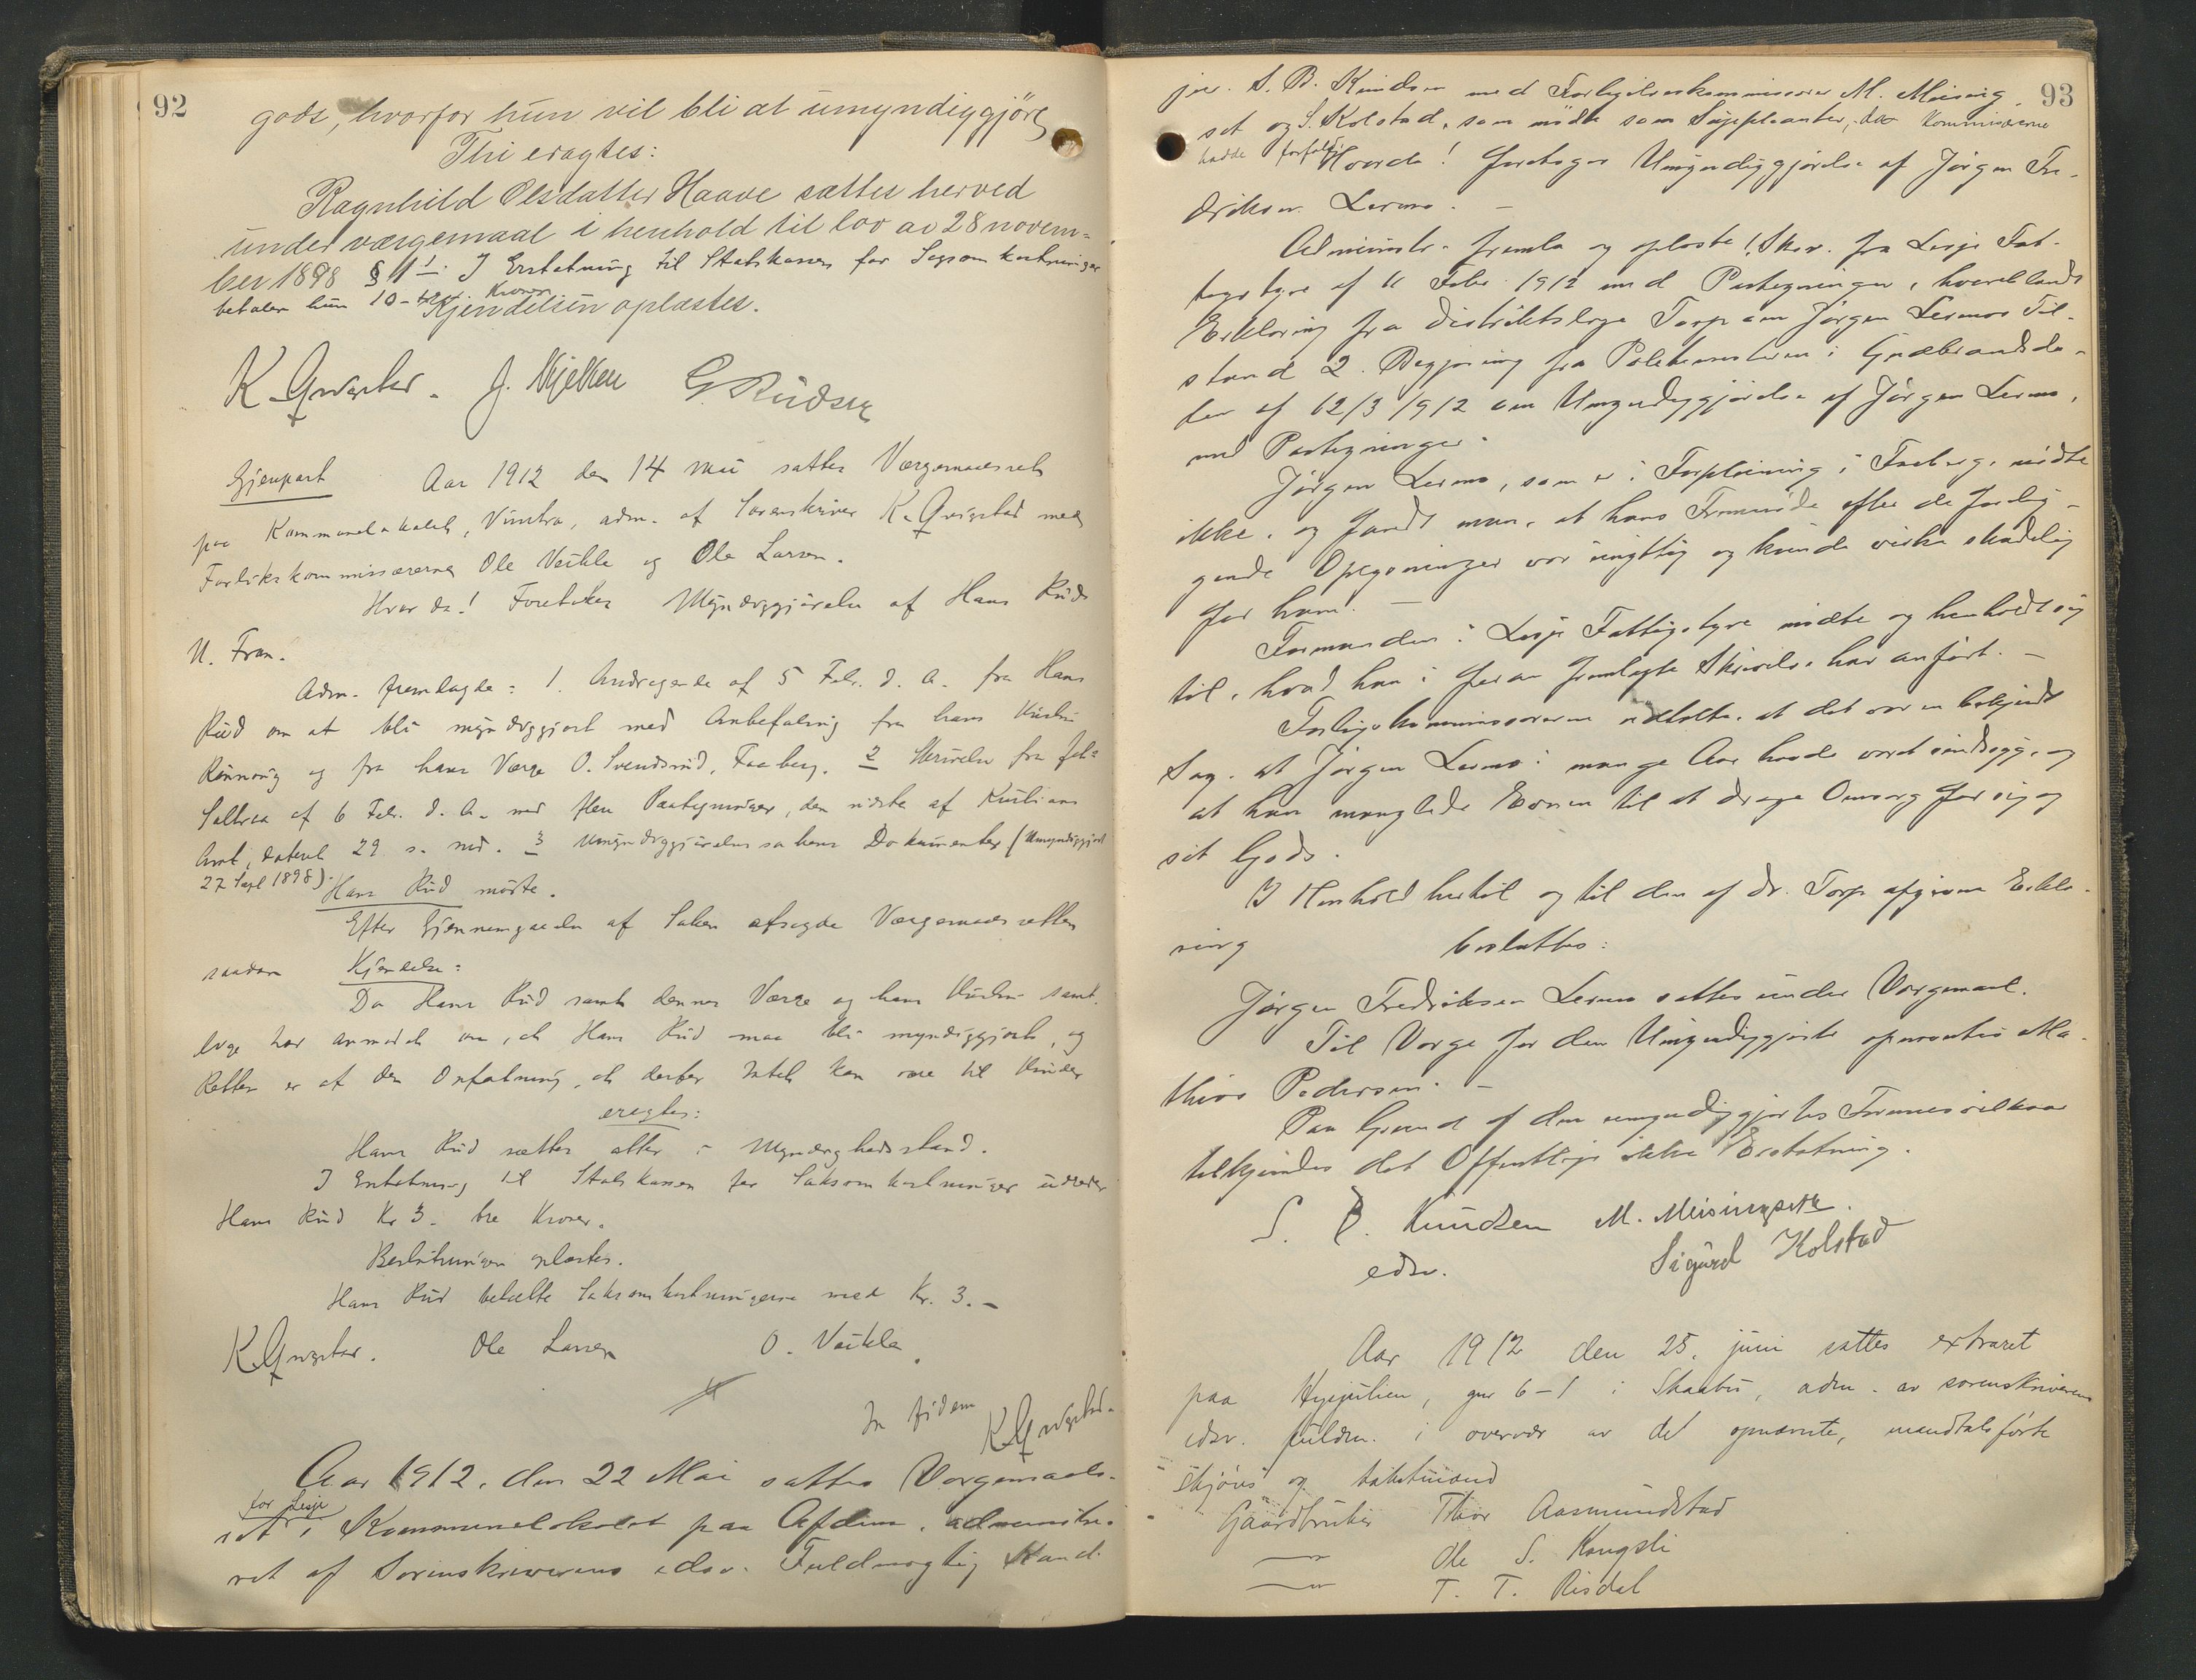 92
gods, hvorfor hun vil bli at umyndiggjöre,
Thi eragtes:
Ragnhild Olsdatter Haave sættes herved
under værgemaal i henhold til lov av 28 novem=
ber 1898 § 1 1. I Erstatning til Statskassen for Sagsomkostninger
betaler hun 10 - Kroner.
Kjendelsen oplæstes.
K Qvigstad. J. Kjelken G. Rudsen
Gjenpart Aar 1912 den 14 Mai sattes Værgemaalsret
paa Kommunelokalet, Vinstra, adm. af Sorenskriver K. Qvigstad med
Forlikskommissærerne Ole Veikle og Ole Larsen.
Hvor da! Foretokes Myndiggjörelse af Hans Rud
N. Fron.
Adm. fremlagde: 1. Andragende af 5 Febr. d. A. fra Hans
Rud om at bli myndiggjort med Anbefaling fra hans Hustru
Rønnaug og fra hans Værge O. Svendsrud, Faaberg. 2 Skrivelse fra
af 6 Febr. d. A. med flere Paategninger, den sidste af Kristians
Amt, dateret 29 s. md. 3 Umyndiggjörelsessakens Dokumenter (Umyndiggjort
27 Sept 1898).
Hans Rud mötte.
Efter Gjennemgaaelse af Saken afsagde Værgemaalsretten
saadan Kjendelse:
Da Hans Rud samt dennes Værge og hans Hustru samt-
lige har anmodet om, at Hans Rud maa bli myndiggjort, og
Retten er af den Opfatning, at derfor Intet kan være til Hinder
eragtes:
Hans Rud sættes atter i Myndighedsstand.
I Erstatning til Statskassen for Saksomkostninger udreder
Hans Rud Kr 3 - tre Kroner.
Beslutningen oplæstes.
Hans Rud betalte Saksomkostningerne med Kr. 3.-
K. Qvigstad. Ole Larsen O. Veikle.
In fidem
K. Qvigstad.
Aar 1912, den 22 Mai sattes Værgemaals-
for Lesje
ret i Kommunelokalet paa administre-
ret af Sorenskriverens edsv. Fuldmægtig Kand.
93
jur. S. B. Knudsen med Forligelseskommissærer M. Meising-
set og S. Kolstad, som mödte som Suppleanter, da Kommissærerne
hadde forfald.
Hvorda! foretoges Umyndiggjørelse af Jørgen Fre-
driksen Lermo. -
Administr. fremla og oplæste 1. Skr. fra Lesje Fat-
tigstyre af 11 Febr 1912 med Paategninger, hvoriblandt
Erklæring fra Distriktslæge Torp om Jørgen Lermos Til-
stand 2. Begjæring fra Politimesteren i Gudbrandsda-
len af 12/3 1912 om Umyndiggjørelse af Jørgen Lermo,
med Paategninger.
Jørgen Lermo, som er i Forpleining i Faaberg, mödte
ikke, og fandt man, at hans Fremmøde efter de forelig-
gende Oplysninger var unyttig og kunde virke skadelig
for ham. -
Formanden i Lesje Fattigstyre mödte og henholdt sig
til, hvad han i foran fremlagte Skrivelse har anført. -
Forligskommissærerne udtalte, at det var en bekjendt
Sag, at Jørgen Lermo i mange Aar havde været sindssyg, og
at han manglede Evnen til at drage Omsorg for sig og
sit Gods.
I Henhold hertil og til den af Dr. Torp afgivne Erklæ-
ring besluttes:
Jørgen Fredriksen Lermo sættes under Værgemaal.
Til Værge for den Umyndiggjorte opnævntes Ma-
thias Pedersen. -
Paa Grund af den umyndiggjortes Formuesvilkaar
tilkjendes det Offentlige ikke Erstatning.
S. B. Knudsen M. Meisingseth.
edsv. Sigurd Kolstad
Aar 1912 den 25. juni sattes extraret
paa gnr 6-1 i Skaabu, adm. av sorenskriverens
edsv. fuldm. i overvær av det opnævnte, mandtalsförte
skjöns og takstmænd
Gaardbruker Thor Aasmundstad
— " — Ole S. Kongsli
— " — T. T. Risdal